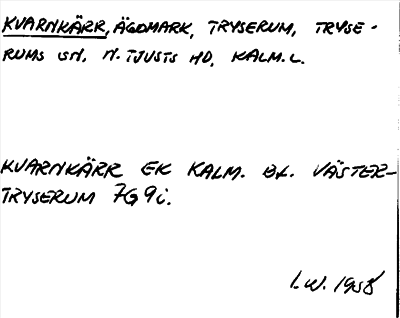 KVARNKÄRR, ÄGOMARK, TRYSERUM, TRYSE-
RUMS SN, N. TJUSTS HD, KALM. L.
KVARNKÄRR EK KALM. BL. VÄSTER-
TRYSERUM 7G 9i.
I.W. 1958